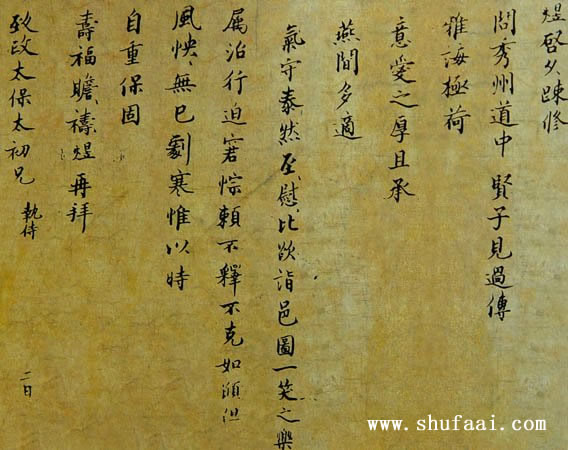 煜啓久疎修
問秀州道中賢子見過傳
雅海極荷
意愛之厚且承
燕閒多適
氣守泰然至慰比欲詣邑圖一笑之樂
属治行迫窘悰賴不釋不克如願但
風怏無已劇寒惟以時
自重保固
壽福瞻禱煜再拜
致政太保太初兄 執侍
二日
www.shufaai.com